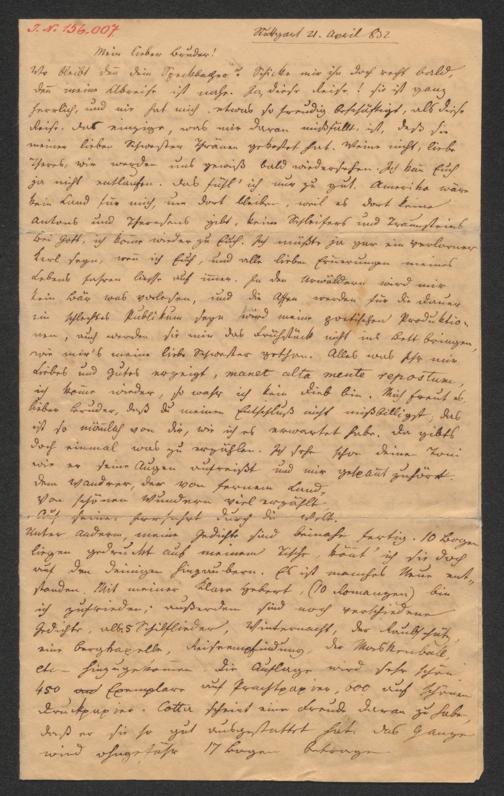 J. N. 156.007
Stuttgart 21. April 832
Mein lieber Bruder!
Wo bleibt den dein Speckbacher? Schicke mir ihn doch recht bald,
den meine Abreise ist nahe. Ja, diese Reise! sie ist ganz
herrlich, und nie hat mich etwas so freudig beschäftigt, als diese
Reise. Das einzige, was mir daran mißfällt ist, daß sie
meiner lieben Schwester Thränen gekostet hat. Weine nicht, liebe
Theres, wir werden uns gewiß bald wiedersehen. Ich kan Euch
ja nicht entlaufen. Das fühl' ich nur zu gut. Amerika wäre
kein Land für mich, um dort bleiben, weil es dort keine
Antons und Theresens gibt, keine Schleifers und Traunsteins
bei Gott, ich kome wieder zu Euch. Ich müßte ja gar ein verlorner
Kerl seyn, wen ich Euch, und alle lieben Erinerungen meines
Lebens fahren liesse auf imer. In den Urwäldern wird mir
kein Bär was vorlesen, und die Affen werden für die Dauer
ein schlechtes Publikum seyn meine poetischen Produktio-
nen, auch werden sie mir das Frühstück nicht ins Bett bringen,
wie mir's meine liebe Schwester gethan. Alles was Ihr mir
Liebes und Gutes erzeigt, manet alta mente repostum,
ich kome wieder, so wahr ich kein Dieb bin. Mich freut es,
lieber Bruder, daß du meinen Entschluß nicht mißbilligst, das
ist so mänlich von dir, wie ich es erwartet habe. Da gibts
doch einmal was zu erzählen. Ich sehe schon deine Toni
wie er seine Augen aufreißt und mir gespant zuhört.
dem Wandrer, der von fernem Land,
Von schönen Wundern viel erzählt
Auf seiner durch die Welt.
Unter anderm, meine Gedichte sind beinahe fertig. 10 Bogen
liegen gedruckt auf meinem Tische, könt' ich sie doch
auf den deinigen hinzaubern. Es ist manches Neue ent-
standen. Mit meiner Klara Hebert, (10 Romanzen) bin
ich zufrieden; außerdem sind noch verschiedene
Gedichte, als: 5 Schilflieder, Winternacht, der Raubschütz,
eine Bergkapelle, Reiseempfindung, der Maskenball,
etc. hinzugekommen. Die Auflage wird sehr schön.
450 Exemplare auf Prachtpapier, 600 auf schönem
Druckpapier. Cotta scheint eine Freude daran zu haben,
daß er sie so gut ausgestattet hat. Das Ganze
wird ohngefähr 17 Bogen betragen